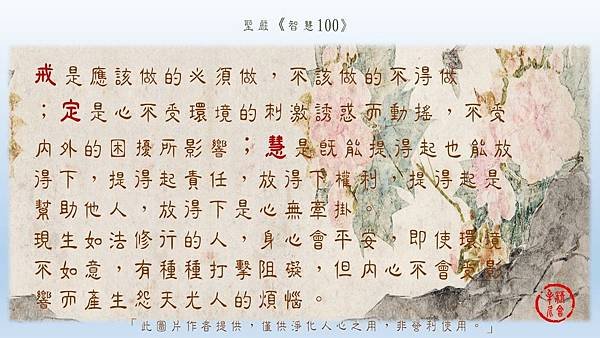 聖嚴《智慧100》
戒是應該做的必須做，不該做的不得做
；定是心不受環境的刺激誘惑而動搖，不受
內外的困擾所影響；慧是既能提得起也能放
得下，提得起責任，放得下權利，提得起是
幫助他人，放得下是心無牽掛。
現生如法修行的人，身心會平安，即使環境
不如意，有種種打擊阻礙，但內心不會受影
響而產生怨天尤人的煩惱。
「此圖片作者提供，僅供淨化人心之用，非營利使用。」